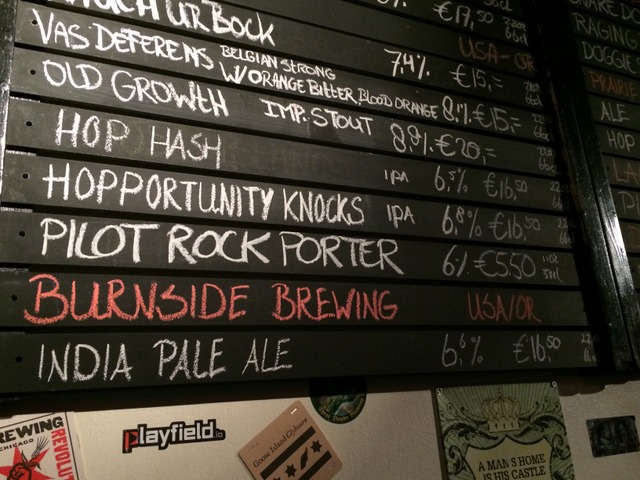 UR BOCK €17,50
USA-OR
VAS DEFERENS BELGIAN STRONG 7,4% €15,=
W/ORANGE BITTER, BLOOD ORANGE 8,1% €15,=
OLD GROWTH IMP. STOUT 8,8% €20,=
HOP HASH IPA 6,5% €16,50
HOPPORTUNITY KNOCKS IPA 6,8% €16,50
PILOT ROCK PORTER 6% €5.50
BURNSIDE BREWING USA/OR
INDIA PALE ALE 6,6% €16,50
RAGING
DOGGIE
PRAIRIE
ALE
HOP
BREWING
CHICAGO
playfield.io
Goose Island Clybourn
A MAN'S HOME
IS HIS CASTLE